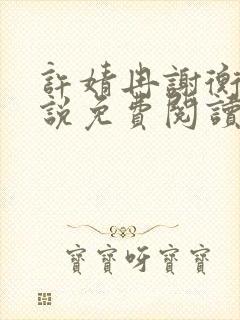 許婧冉謝衡
說免費閱讀
寶寶呀寶寶